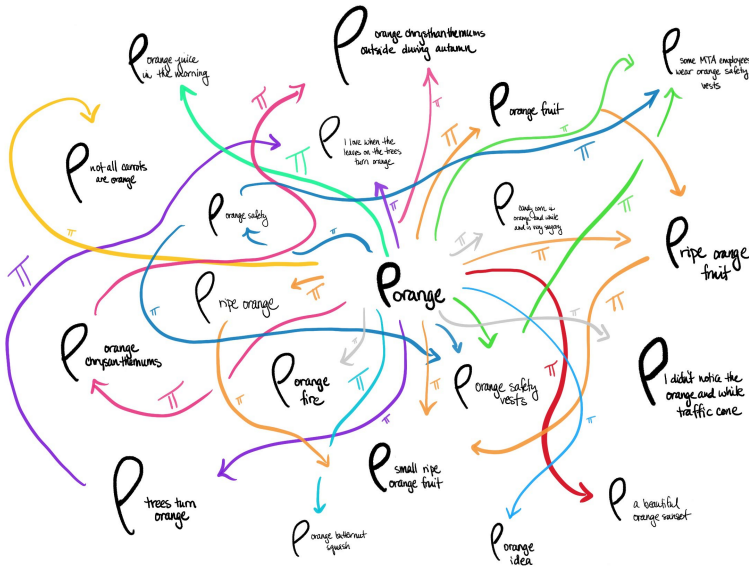 ρ orange juice
in the morning
ρ orange chrysthanthemums
outside during autumn
ρ some MTA employees
wear orange safety
vests
ρ orange fruit
ρ not all carrots
are orange
ρ I love when the
leaves on the trees
turn orange
π
π
π
π
π
π
π
ρ orange safety
ρ candy corn is
orange and white
and is very sugary
π
π
ρ ripe orange
fruit
π
π
π
π
π
ρ ripe orange
π
ρ orange
π
π
ρ orange
chrysanthemums
π
π
ρ orange
fire
π
π
π
ρ orange safety
vests
π
ρ I didn't notice the
orange and white
traffic cone
π
π
ρ trees turn
orange
ρ small ripe
orange fruit
ρ orange butternut
squash
ρ orange
idea
ρ a beautiful
orange sunset